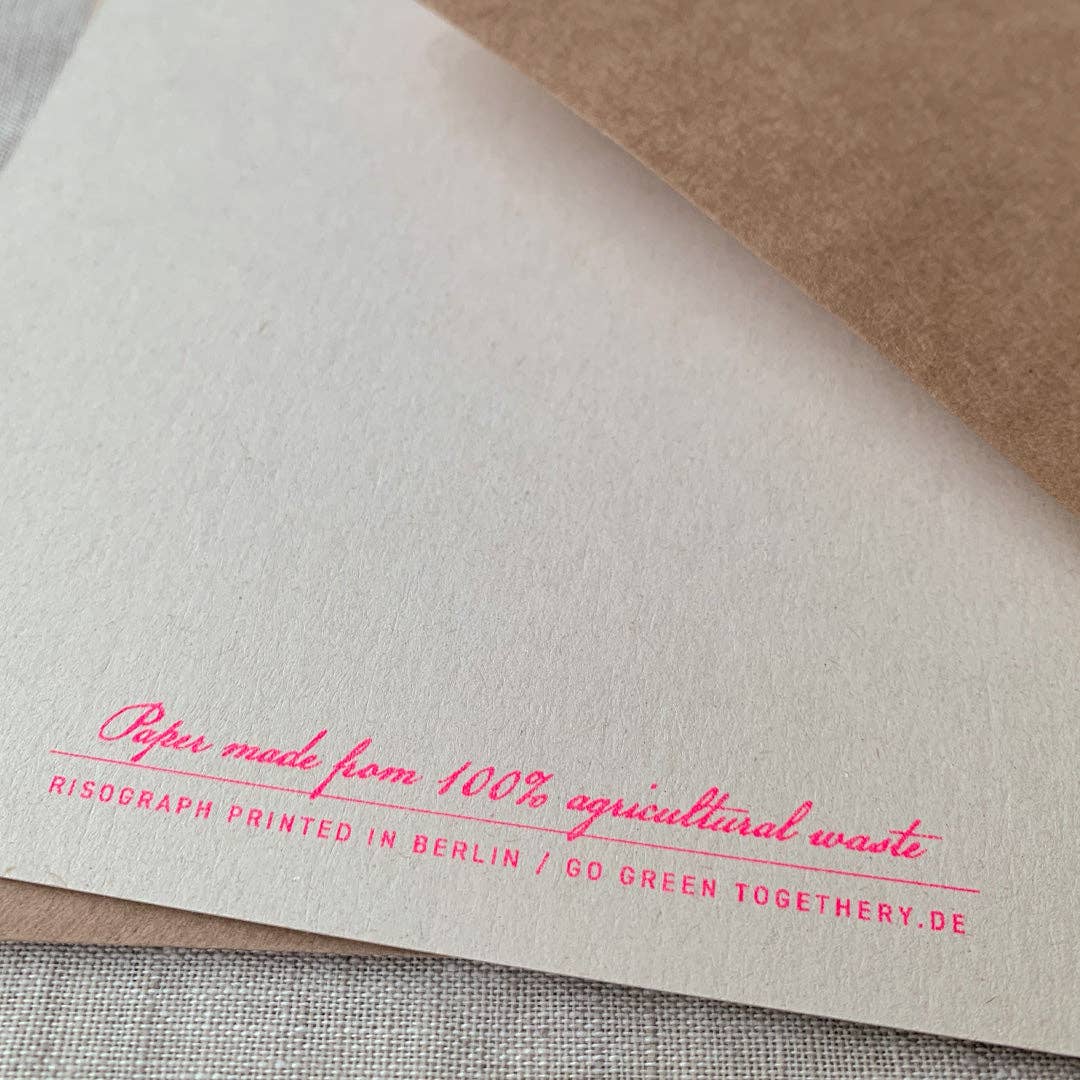 Paper made from 100% agricultural waste
RISOGRAPH PRINTED IN BERLIN / GO GREEN TOGETHERY.DE